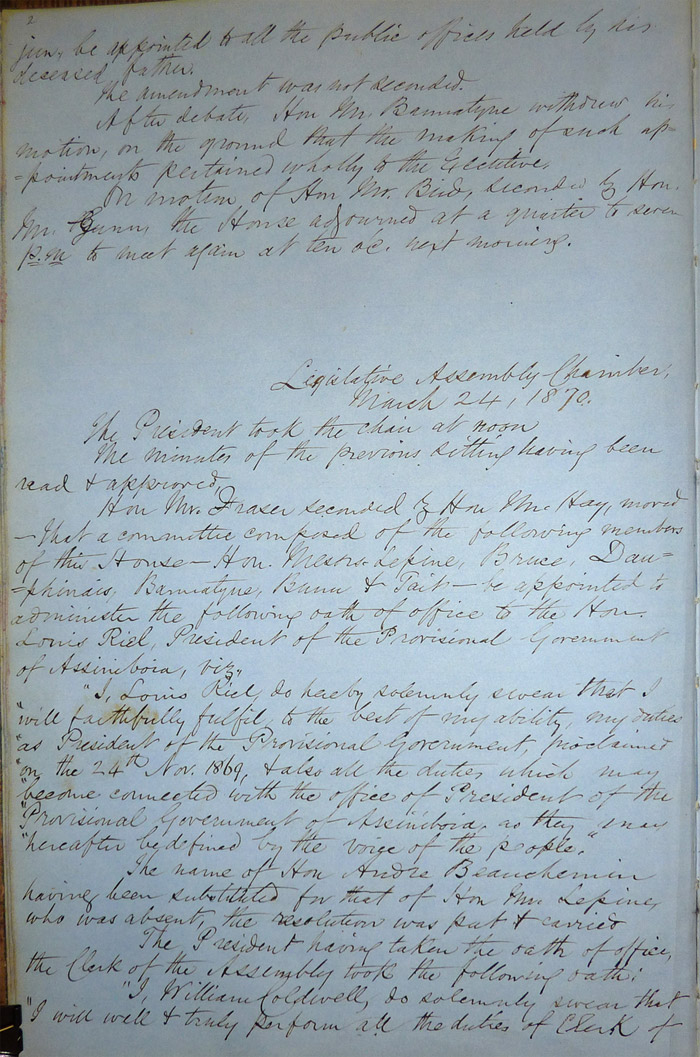 2
jun., be appointed to all the public offices held by his
deceased father.
The amendment was not seconded.
After debate, Hon Mr. Bannatyne withdrew his
motion, on the ground that the making of such ap-
-pointments pertained wholly to the Executive.
On motion of Hon Mr. Bird, seconded by Hon.
Mr. Gunn, the House adjourned at a quarter to seven
p.m to meet again at ten oc. next morning.
Legislative Assembly Chamber,
March 24, 1870.
The President took the chair at noon
The minutes of the previous sitting having been
read & approved,
Hon Mr. Fraser seconded by Hon Mr. Hay, moved
- That a committee composed of the following members
of this House - Hon. Messrs Lepine, Bruce, Dau-
-phinais, Bannatyne, Bunn & Tait - be appointed to
administer the following oath of office to the Hon.
Louis Riel, President of the Provisional Government
of Assiniboia, viz,
"I, Louis Riel, do hereby solemnly swear that I
"will faithfully fulfil, to the best of my ability, my duties
"as President of the Provisional Government, proclaimed
"on the 24th Nov. 1869, & also all the duties which may
"become connected with the office of President of the
"Provisional Government of Assiniboia, as they may
"hereafter be defined by the voice of the people."
The name of Hon Andre Beauchemin
having been substituted for that of Hon Mr. Lepine,
who was absent, the resolution was put & carried
The President having taken the oath of office,
the Clerk of the Assembly took the following oath:
"I, William Coldwell, do solemnly swear that
"I will well & truly perform all the duties of Clerk of